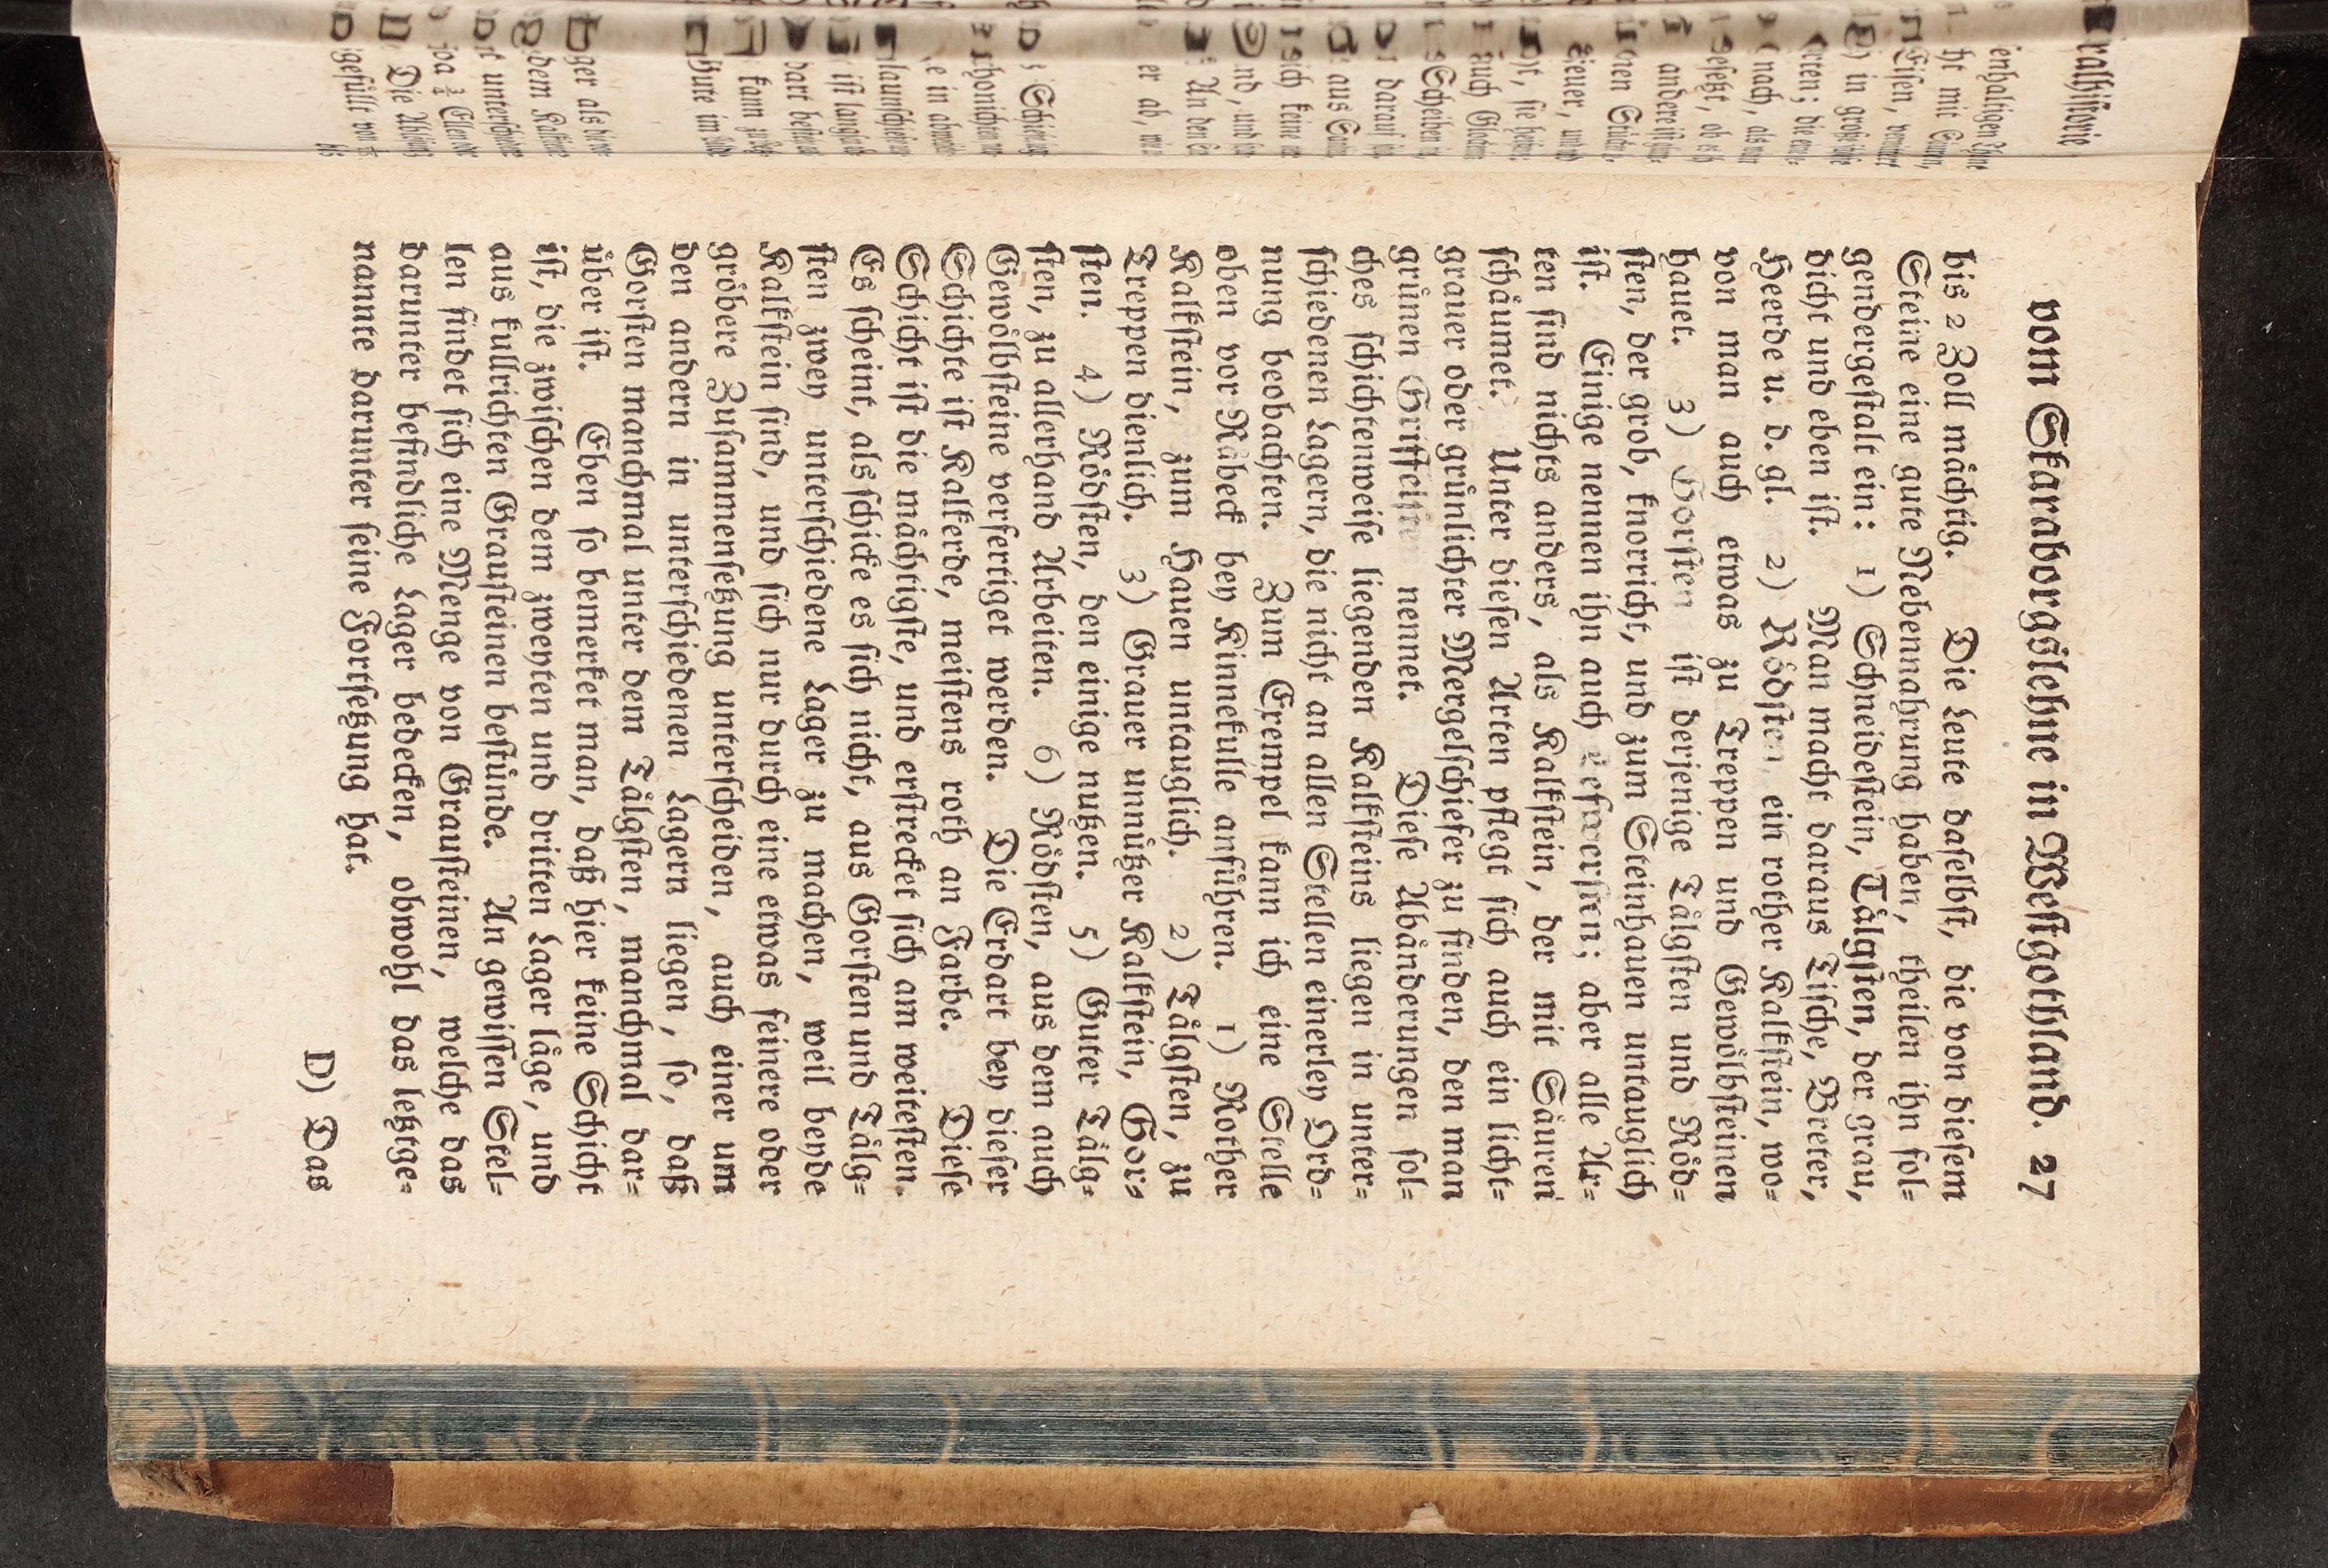 vom Skaraborgslehne in Westgothland. 27
bis 2 Zoll mächtig. Die Leute daselbst, die von diesem
Steine eine gute Nebennahrung haben, theilen ihn fol-
gendergestalt ein: 1) Schneidestein, Tälgsten, der grau,
dicht und eben ist. Man macht daraus Tische, Breter,
Heerde u. d. gl. 2) Rödsten ein rother Kalkstein, wo-
von man auch etwas zu Treppen und Gewölbsteinen
hauet. 3) Gorsten ist derjenige Tälgsten und Röd-
sten, der grob, knorricht, und zum Steinhauen untauglich
ist. Einige nennen ihn auch ; aber alle Ar-
ten sind nichts anders, als Kalkstein, der mit Säuren
schäumet. Unter diesen Arten pflegt sich auch ein licht-
grauer oder grünlichter Mergelschiefer zu finden, den man
grünen nennet. Diese Abänderungen sol-
ches schichtenweise liegenden Kalksteins liegen in unter-
schiedenen Lagern, die nicht an allen Stellen einerley Ord-
nung beobachten. Zum Exempel kann ich eine Stelle
oben vor Råbeck bey Kinnekulle anführen. 1) Rother
Kalkstein, zum Hauen untauglich. 2) Tälgsten, zu
Treppen dienlich. 3) Grauer unnützer Kalkstein, Gor-
sten. 4) Rödsten, den einige nutzen. 5) Guter Tälg-
sten, zu allerhand Arbeiten. 6) Rödsten, aus dem auch
Gewölbsteine verfertiget werden. Die Erdart bey dieser
Schichte ist Kalkerde, meistens roth an Farbe. Diese
Schicht ist die mächtigste, und erstrecket sich am weitesten.
Es scheint, als schicke es sich nicht, aus Gorsten und Tälg-
sten zwey unterschiedene Lager zu machen, weil beyde
Kalkstein sind, und sich nur durch eine etwas feinere oder
gröbere Zusammensetzung unterscheiden, auch einer um
den andern in unterschiedenen Lagern liegen, so, daß
Gorsten manchmal unter dem Tälgsten, manchmal dar-
über ist. Eben so bemerket man, daß hier keine Schicht
ist, die zwischen dem zweyten und dritten Lager läge, und
aus kullrichten Grausteinen bestünde. An gewissen Stel-
len findet sich eine Menge von Grausteinen, welche das
darunter befindliche Lager bedecken, obwohl das letztge-
nannte darunter seine Fortsetzung hat.
D) Das